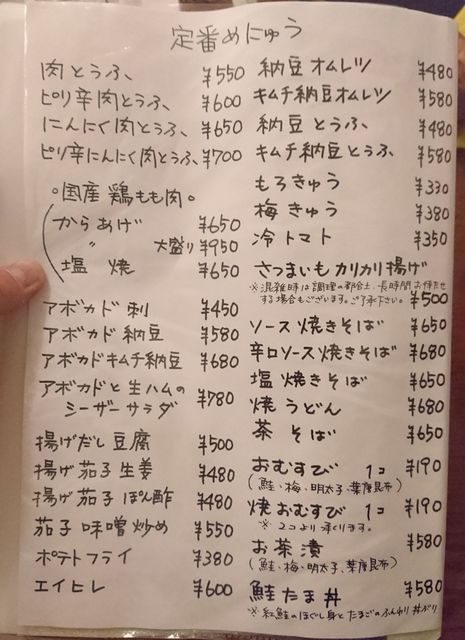 定番めにゅう
肉とうふ ¥550
ピリ辛肉とうふ ¥600
にんにく肉とうふ ¥650
ピリ辛にんにく肉とうふ ¥700
。国産鶏もも肉。
からあげ ¥650
〃 大盛り ¥950
塩焼 ¥650
アボカド刺 ¥450
アボカド納豆 ¥580
アボカドキムチ納豆 ¥680
アボカドと生ハムの
シーザーサラダ ¥780
揚げだし豆腐 ¥500
揚げ茄子生姜 ¥480
揚げ茄子ぽん酢 ¥480
茄子味噌炒め ¥550
ポテトフライ ¥380
エイヒレ ¥600
納豆オムレツ ¥480
キムチ納豆オムレツ ¥580
納豆とうふ ¥480
キムチ納豆とうふ ¥580
もろきゅう ¥330
梅きゅう ¥380
冷トマト ¥350
さつまいもカリカリ揚げ
※混雑時は調理の都合上、長時間お待たせ
する場合もございます。ご了承下さい。 ¥500
ソース焼きそば ¥650
辛口ソース焼きそば ¥680
塩焼きそば ¥650
焼うどん ¥680
茶そば ¥650
おむすび 1コ ¥190
(鮭、梅、明太子、葉唐昆布)
焼おむすび 1コ ¥190
※2コより承ります。
お茶漬 ¥580
(鮭、梅、明太子、葉唐昆布)
鮭たま丼 ¥580
※紅鮭のほぐし身とたまごのふんわり丼ぶり